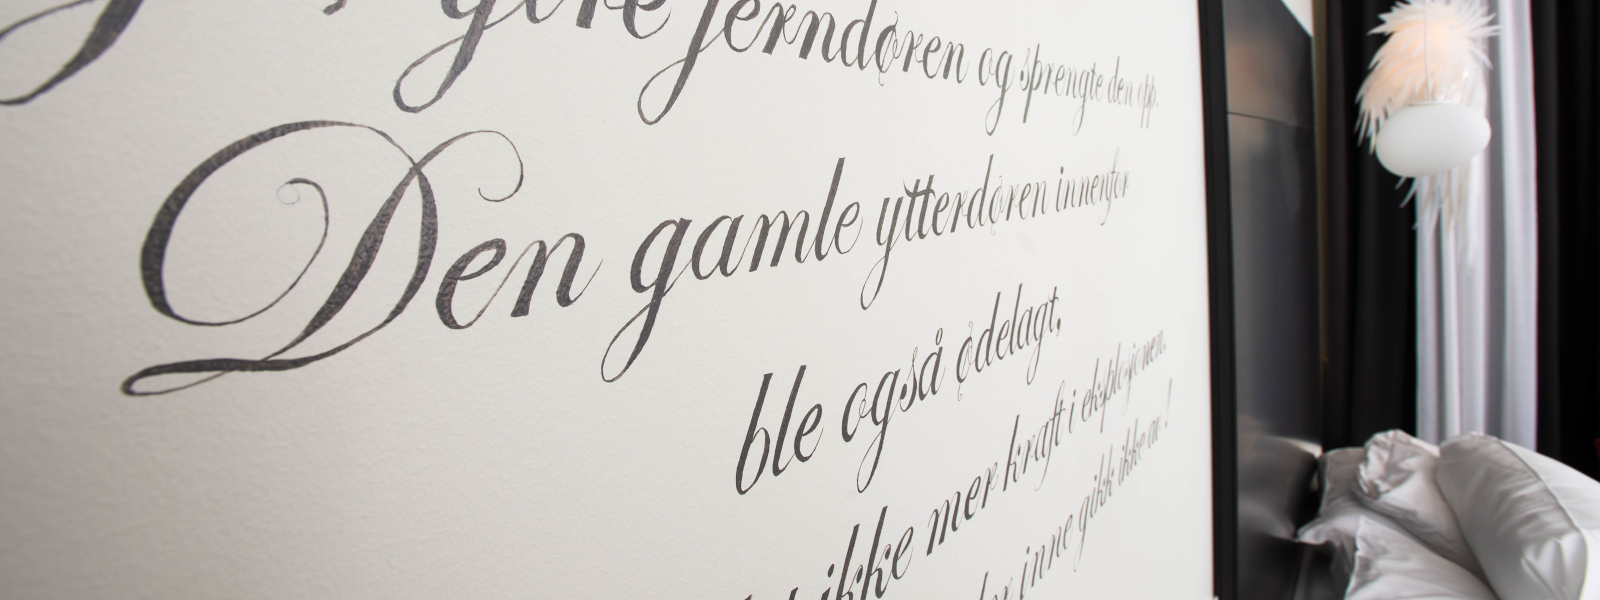 gøre jerndøren og sprengte den opp.
Den gamle ytterdøren innenfor
ble også ødelagt,
ikke mer kraft i eksplosjonen.
inne gikk ikke av!